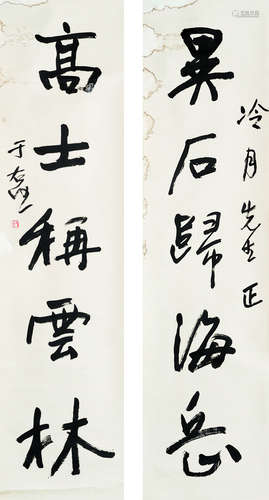 異石歸海岳
冷月先生正
高士稱雲林
于右任